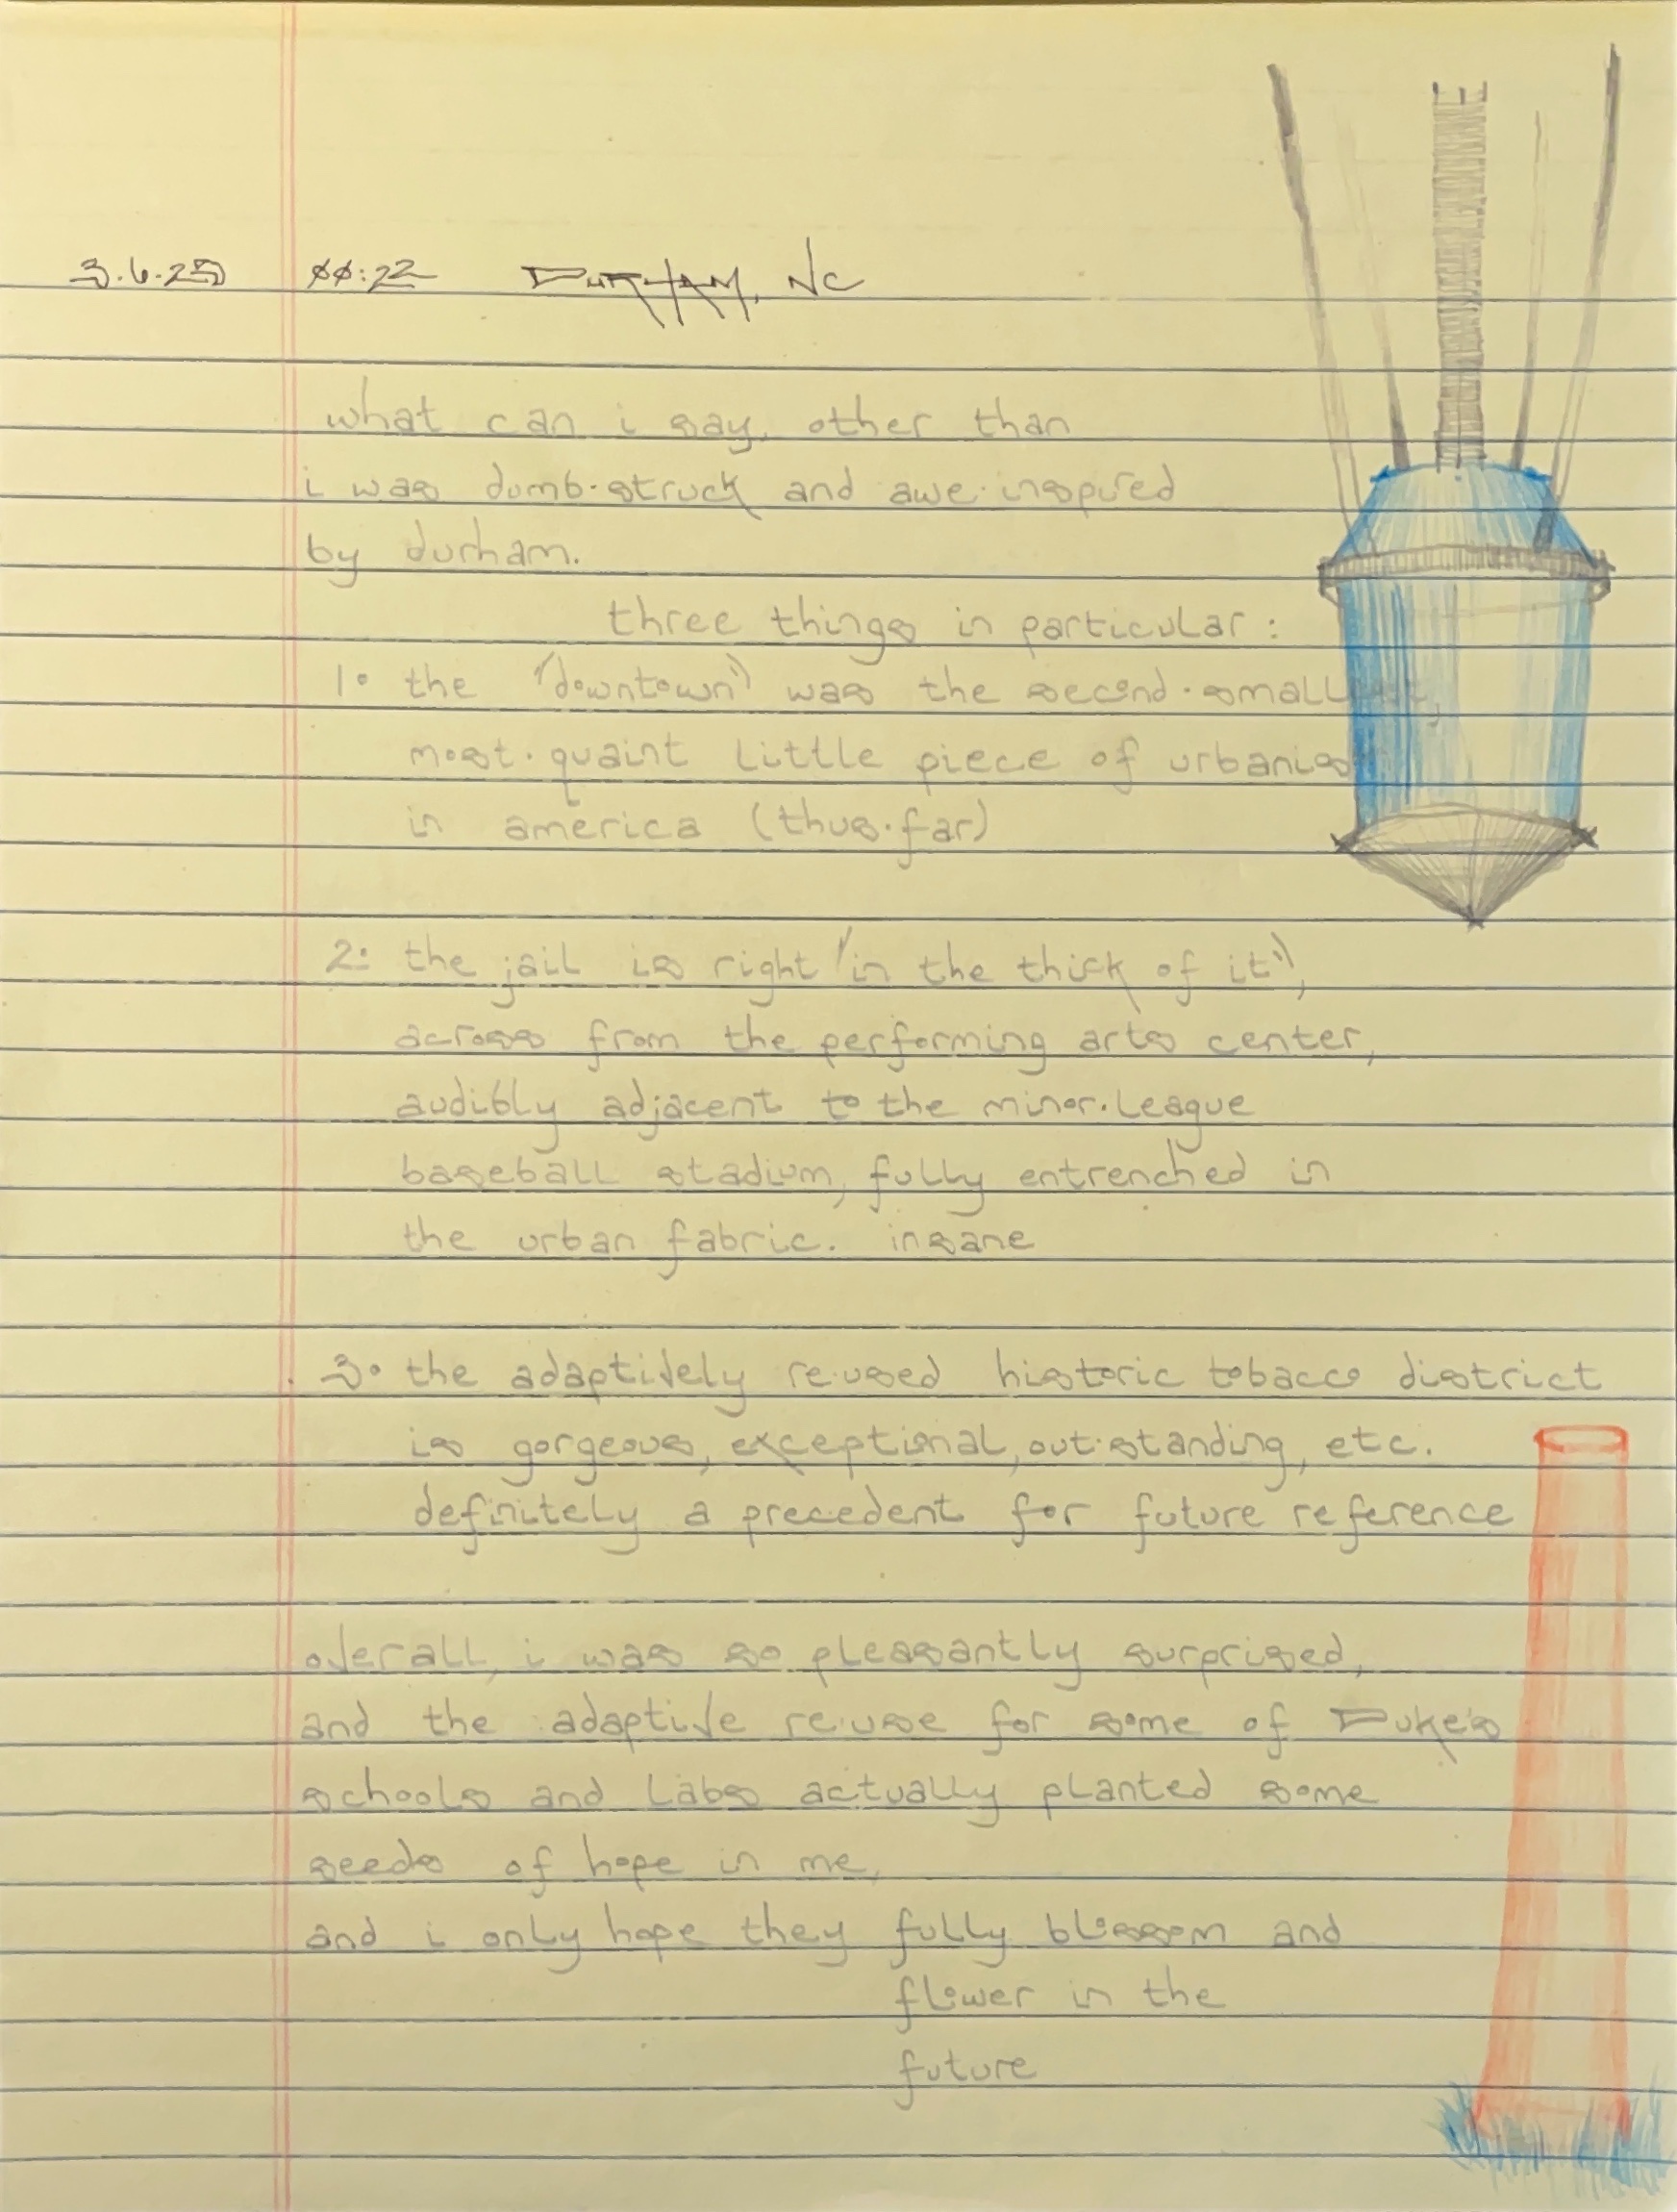 3.6.25 00:22 DURHAM, NC
what can i say, other than
i was dumb·struck and awe·inspired
by durham.
three things in particular:
1. the "downtown" was the second·smallest,
most·quaint little piece of urbanism
in america (thus·far)
2. the jail is right "in the thick of it",
across from the performing arts center,
audibly adjacent to the minor·league
baseball stadium, fully entrenched in
the urban fabric. insane
3. the adaptively re·used historic tobacco district
is gorgeous, exceptional, out·standing, etc.
definitely a precedent for future reference
overall, i was so pleasantly surprised,
and the adaptive re·use for some of Duke's
schools and labs actually planted some
seeds of hope in me,
and i only hope they fully blossom and
flower in the
future